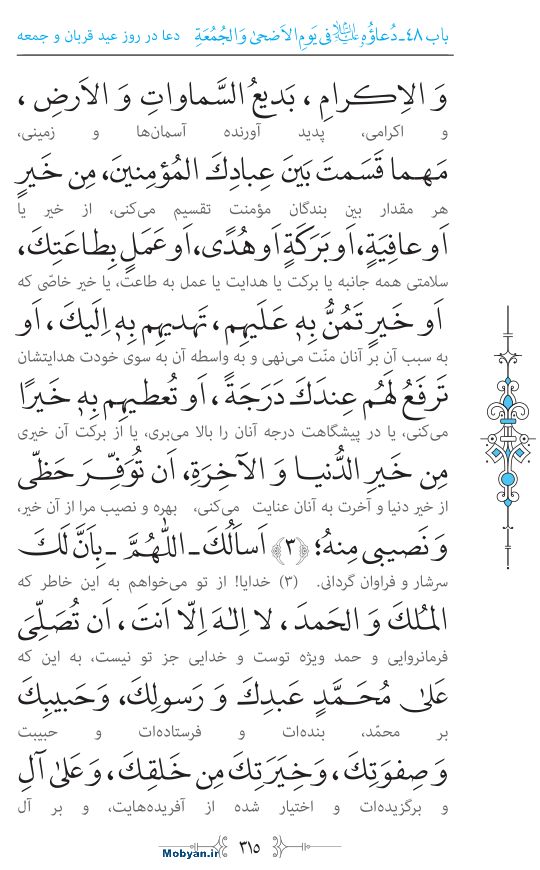 باب ۴۸ـ دُعاؤُهُ علیه‌السلام فی یَومِ الاَضحیٰ وَ الجُمُعَةِ   دعا در روز عید قربان و جمعه
وَ الاِکرامِ ، بَدیعُ السَّماواتِ وَ الاَرضِ ،
و اکرامی، پدید آورنده آسمان‌ها و زمینی،
مَهما قَسَمتَ بَینَ عِبادِكَ المُؤمِنینَ، مِن خَیرٍ
هر مقدار بین بندگان مؤمنت تقسیم می‌کنی، از خیر یا
اَو عافِیَةٍ، اَو بَرَکَةٍ اَو هُدًی، اَو عَمَلٍ بِطاعَتِكَ،
سلامتی همه جانبه یا برکت یا هدایت یا عمل به طاعتت، یا خیر خاصّی که
اَو خَیرٍ تَمُنُّ بِهٖ عَلَیهِم ، تَهدیهِم بِهٖ اِلَیكَ ، اَو
به سبب آن بر آنان منّت می‌نهی و به واسطه آن به سوی خودت هدایتشان
تَرفَعُ لَهُم عِندَكَ دَرَجَةً ، اَو تُعطیهِم بِهٖ خَیرًا
می‌کنی، یا در پیشگاهت درجه آنان را بالا می‌بری، یا از برکت آن خیری
مِن خَیرِ الدُّنیا وَ الآخِرَةِ، اَن تُوَفِّرَ حَظّی
از خیر دنیا و آخرت به آنان عنایت می‌کنی، بهره و نصیب مرا از آن خیر،
وَ نَصیبی مِنهُ؛ ﴿۳﴾ اَسأَلُكَ ـ اللّٰهُمَّ ـ بِاَنَّ لَكَ
سرشار و فراوان گردانی. (۳) خدایا! از تو می‌خواهم به این خاطر که
المُلكَ وَ الحَمدَ ، لا اِلٰهَ اِلّا اَنتَ ، اَن تُصَلِّیَ
فرمانروایی و حمد ویژه توست و خدایی جز تو نیست، به این که
عَلیٰ مُحَمَّدٍ عَبدِكَ وَ رَسولِكَ، وَ حَبیبِكَ
بر محمّد، بنده‌ات و فرستاده‌ات و حبیبت
وَ صِفوَتِكَ ، وَ خِیَرَتِكَ مِن خَلقِكَ ، وَ عَلیٰ آلِ
و برگزیده‌ات و اختیار شده از آفریده‌هایت، و بر آل
۳۱۵
Mobyan.ir